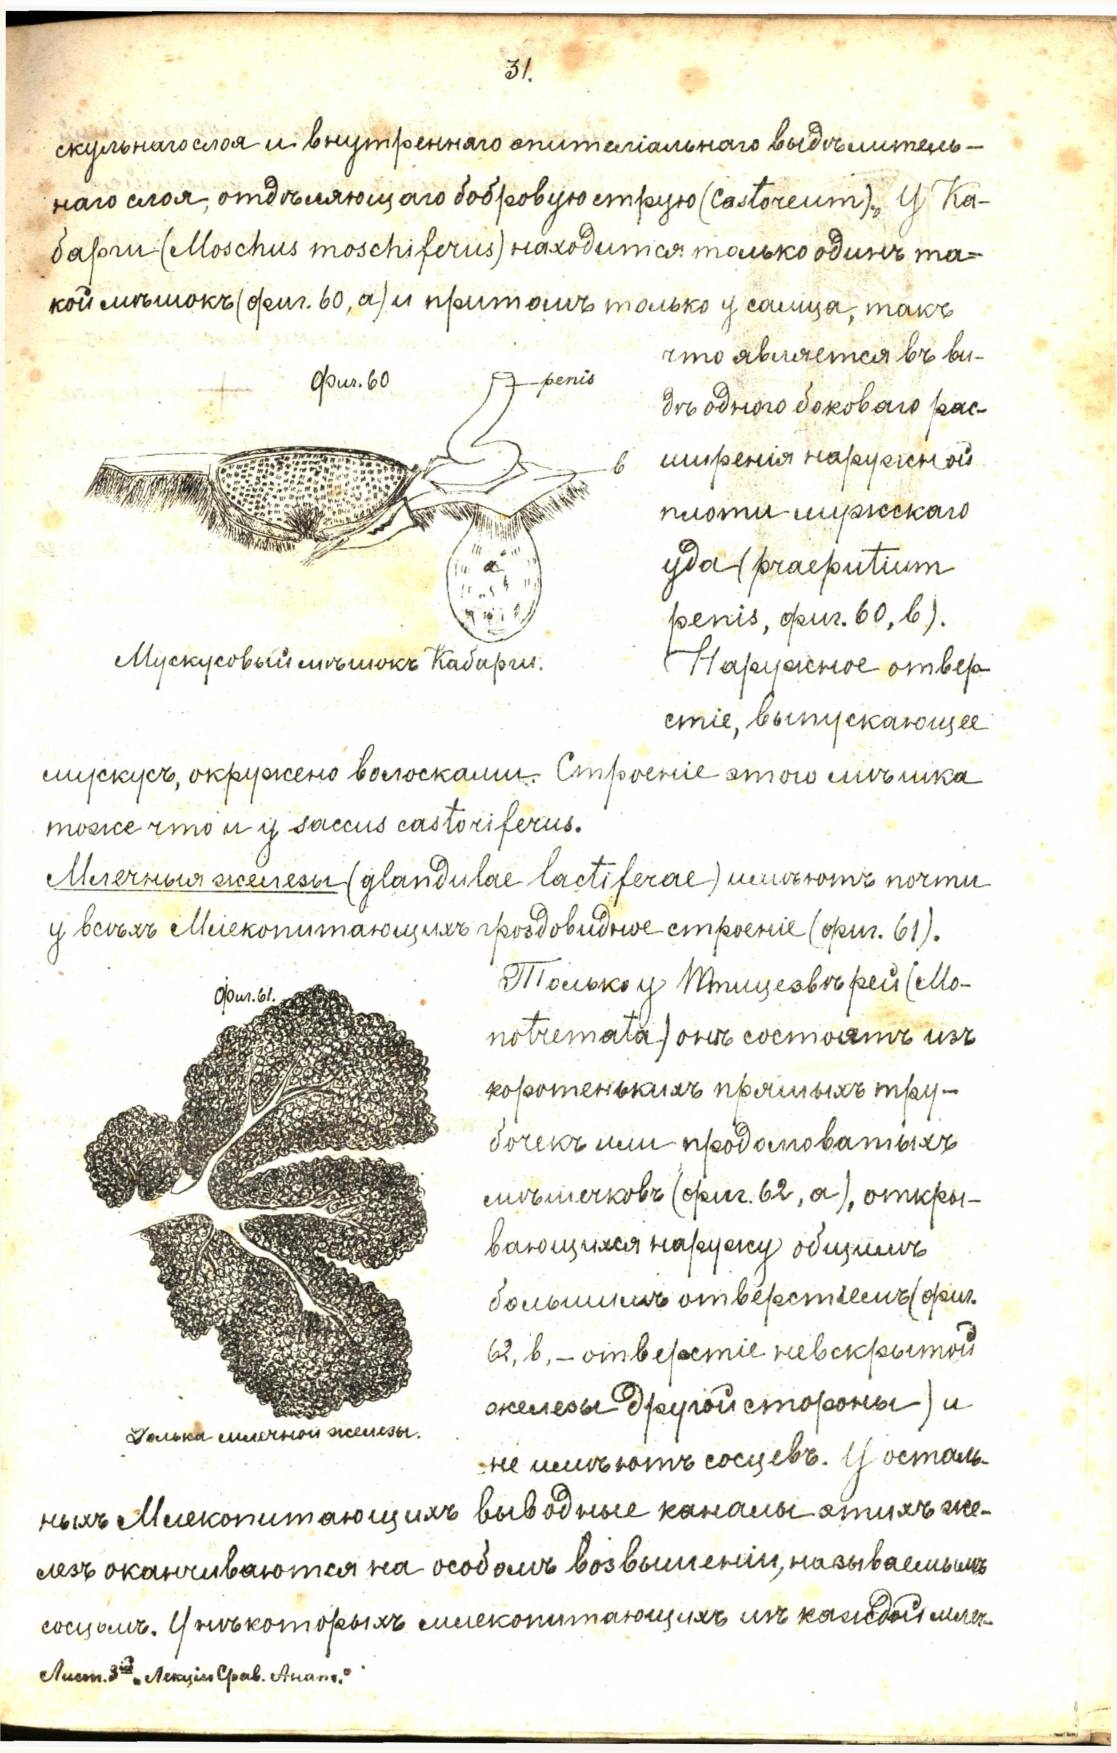 31.
скульнаго слоя и внутренняго эпителіальнаго выдѣлитель-
наго слоя, отдѣляющаго бобровую струю (Castoreum). У Ка-
барги (Moschus moschiferus) находится только одинъ та-
кой мѣшокъ (фиг. 60, а) и притомъ только у самца, такъ
что является въ ви-
дѣ одного боковаго рас-
ширенія наружной
плоти мужскаго
уда (praeputium
penis, фиг. 60, в).
Наружное отвер
стіе, выпускающее
Фиг. 60
penis
в
а
Мускусовый мѣшокъ Кабарги.
мускусъ, окружено волосками. Строеніе этого мѣшка
тоже что и у saccus castoriferus.
Млечныя железы (glandulae lactiferae) имѣютъ почти
у всѣхъ Млекопитающихъ гроздовидное строеніе (фиг. 61).
Только у Птицезвѣрей (Mo-
notremata) онѣ состоятъ изъ
коротенькихъ прямыхъ тру-
бочекъ или продолговатыхъ
мѣшечковъ (фиг. 62, а), откры-
вающихся наружу общимъ
большимъ отверстіемъ (фиг.
62, в, – отверстіе невскрытой
железы другой стороны) и
не имѣютъ сосцевъ. У осталь-
Фиг. 61.
Долька млечной железы.
ныхъ Млекопитающихъ выводные каналы этихъ же-
лезъ оканчиваются на особомъ возвышеніи, называемымъ
сосцомъ. У нѣкоторыхъ млекопитающихъ изъ каждой млеч-
Лист. 3й „Лекціи Срав. Анат.“